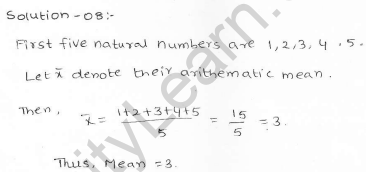 Solution-08:-
First five natural numbers are 1,2,3, 4 .5.
Let x̄ denote their arithematic mean.
Then, x̄ = 1+2+3+4+5 / 5 = 15 / 5 = 3.
Thus, Mean = 3.
ityLearn.com